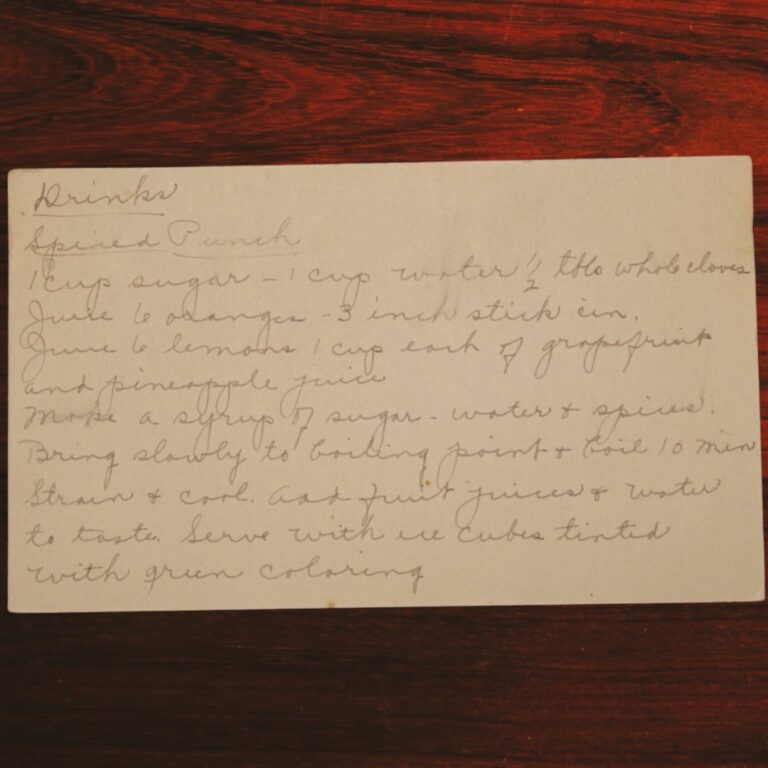 Drinks
Spiced Punch
1 cup sugar - 1 cup water ½ tbls whole cloves
Juice 6 oranges - 3 inch stick cin.
Juice 6 lemons 1 cup each of grapefruit
and pineapple juice
Make a syrup of sugar - water & spices.
Bring slowly to boiling point & boil 10 min
Strain & cool. Add fruit juices & water
to taste. Serve with ice cubes tinted
with green coloring